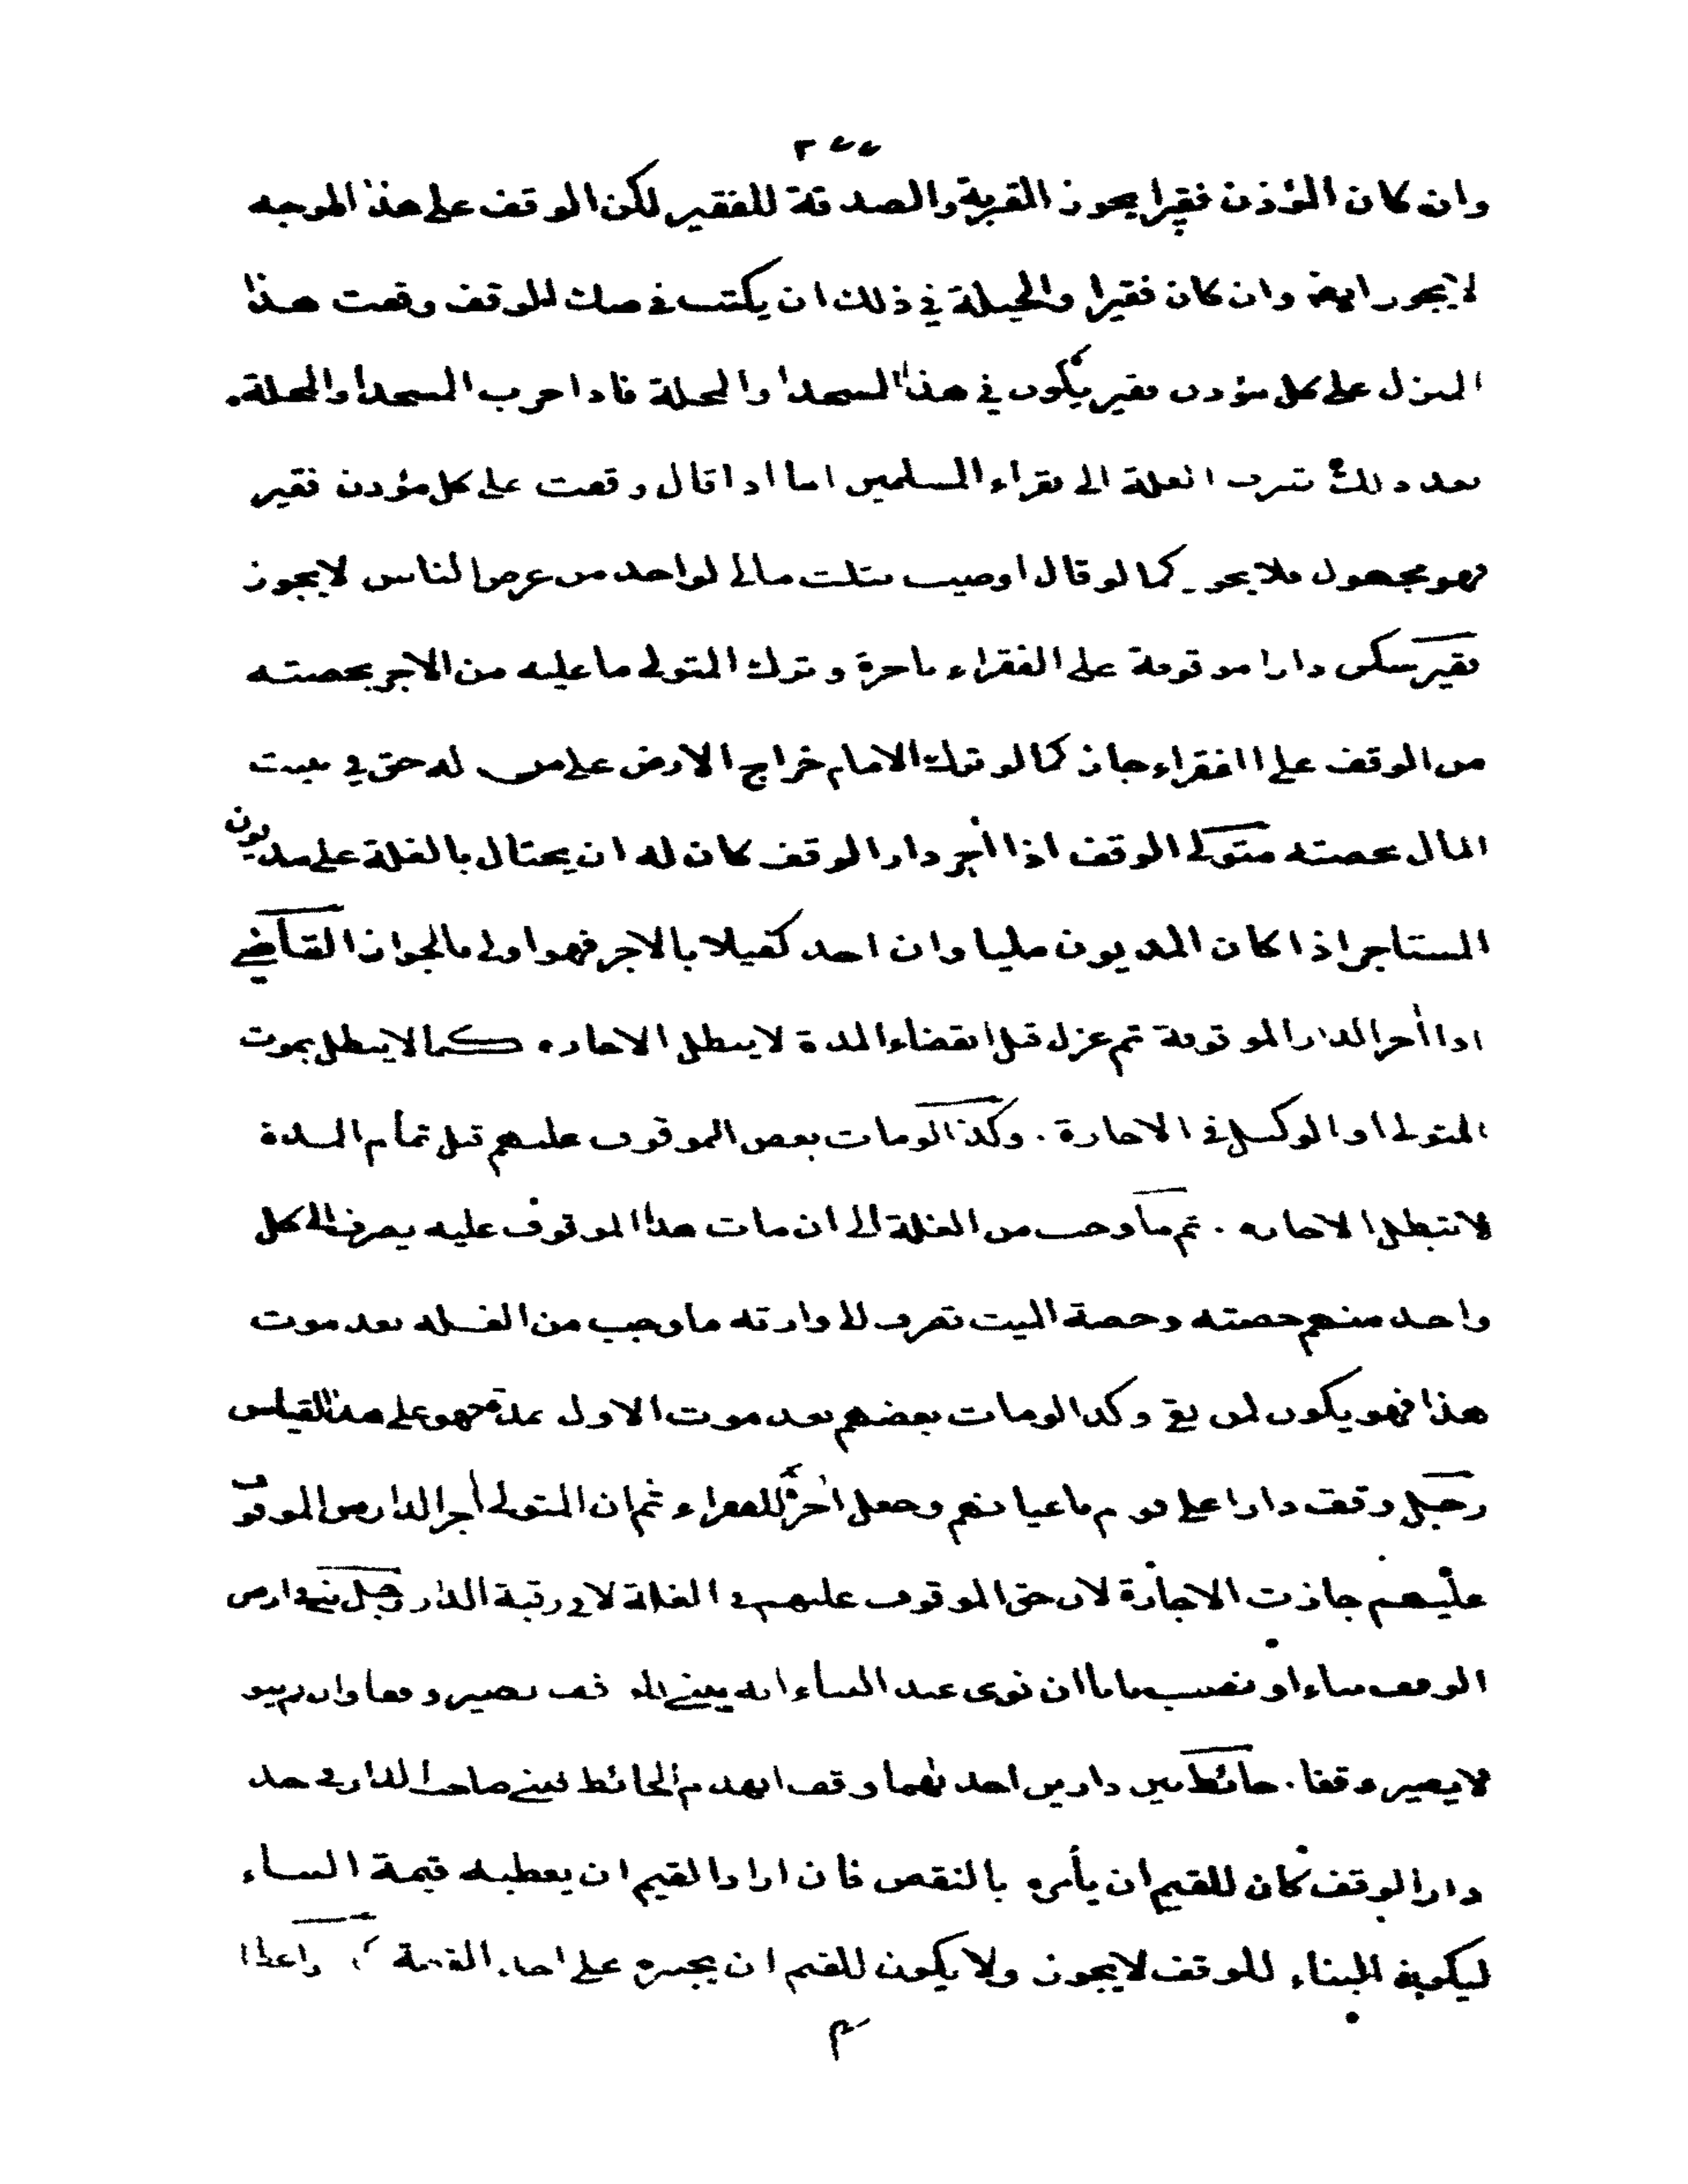 وان كان المؤذن فقيرا يجوز القربة والصدقة للفقير لكن الوقف على هذا الوجه
لا يجوز ايضا وان كان فقيرا والحيلة في ذلك ان يكتب في صك الوقف وقفت هذا
المنزل على كل مؤذن فقير يكون في هذا المسجد او المحلة فاذا خرب المسجد او المحلة
بعد ذلك تصرف الغلة الى فقراء المسلمين اما اذا قال وقفت على كل مؤذن فقير
فهو مجهول فلا يجوز كما لو قال اوصيت بثلث مالي لواحد من عرض الناس لا يجوز
فقير سكن دارا موقوفة على الفقراء باجرة وترك المتولى ما عليه من الاجر بحصته
من الوقف على الفقراء جاز كما لو ترك الامام خراج الارض على من له حق في بيت
المال بحصته متولى الوقف اذا أجر دار الوقف كان له ان يحتال بالغلة على مديون
المستاجر اذا كان المديون مليا وان اخذ كفيلا بالاجر فهو اولى بالجواز القاضي
اذا أجر الدار الموقوفة ثم عزل قبل انقضاء المدة لا يبطل الاجاره كما لا يبطل بموت
المتولى او الوكيل في الاجارة . وكذا لو مات بعض الموقوف عليهم قبل تمام المدة
لا تبطل الاجاره . ثم ما وجب من الغلة الى ان مات هذا الموقوف عليه يصرف الى كل
واحد منهم حصته وحصة الميت تصرف الى وارثه ما وجب من الغله بعد موت
هذا فهو يكون لمن بقي وكذا لو مات بعضهم بعد موت الاول بمدة فهو على هذا القياس
رجل وقف دارا على قوم باعيانهم وجعل اخره للفقراء ثم ان المتولى أجر الدار من الموقوف
عليهم جازت الاجارة لان حق الموقوف عليهم في الغلة لا في رقبة الدار رجل بنى في ارض
الوقف بناء او نصب بابا ان نوى عند البناء انه يبني للوقف يصير وقفا وان لم ينو
لا يصير وقفا . حائط بين دارين احدهما وقف انهدم الحائط فبنى صاحب الدار في حد
دار الوقف كان للقيم ان يأمره بالنقض فان اراد القيم ان يعطيه قيمة البناء
ليكون البناء للوقف لا يجوز ولا يكون للقيم ان يجبره على اخذ القيمة